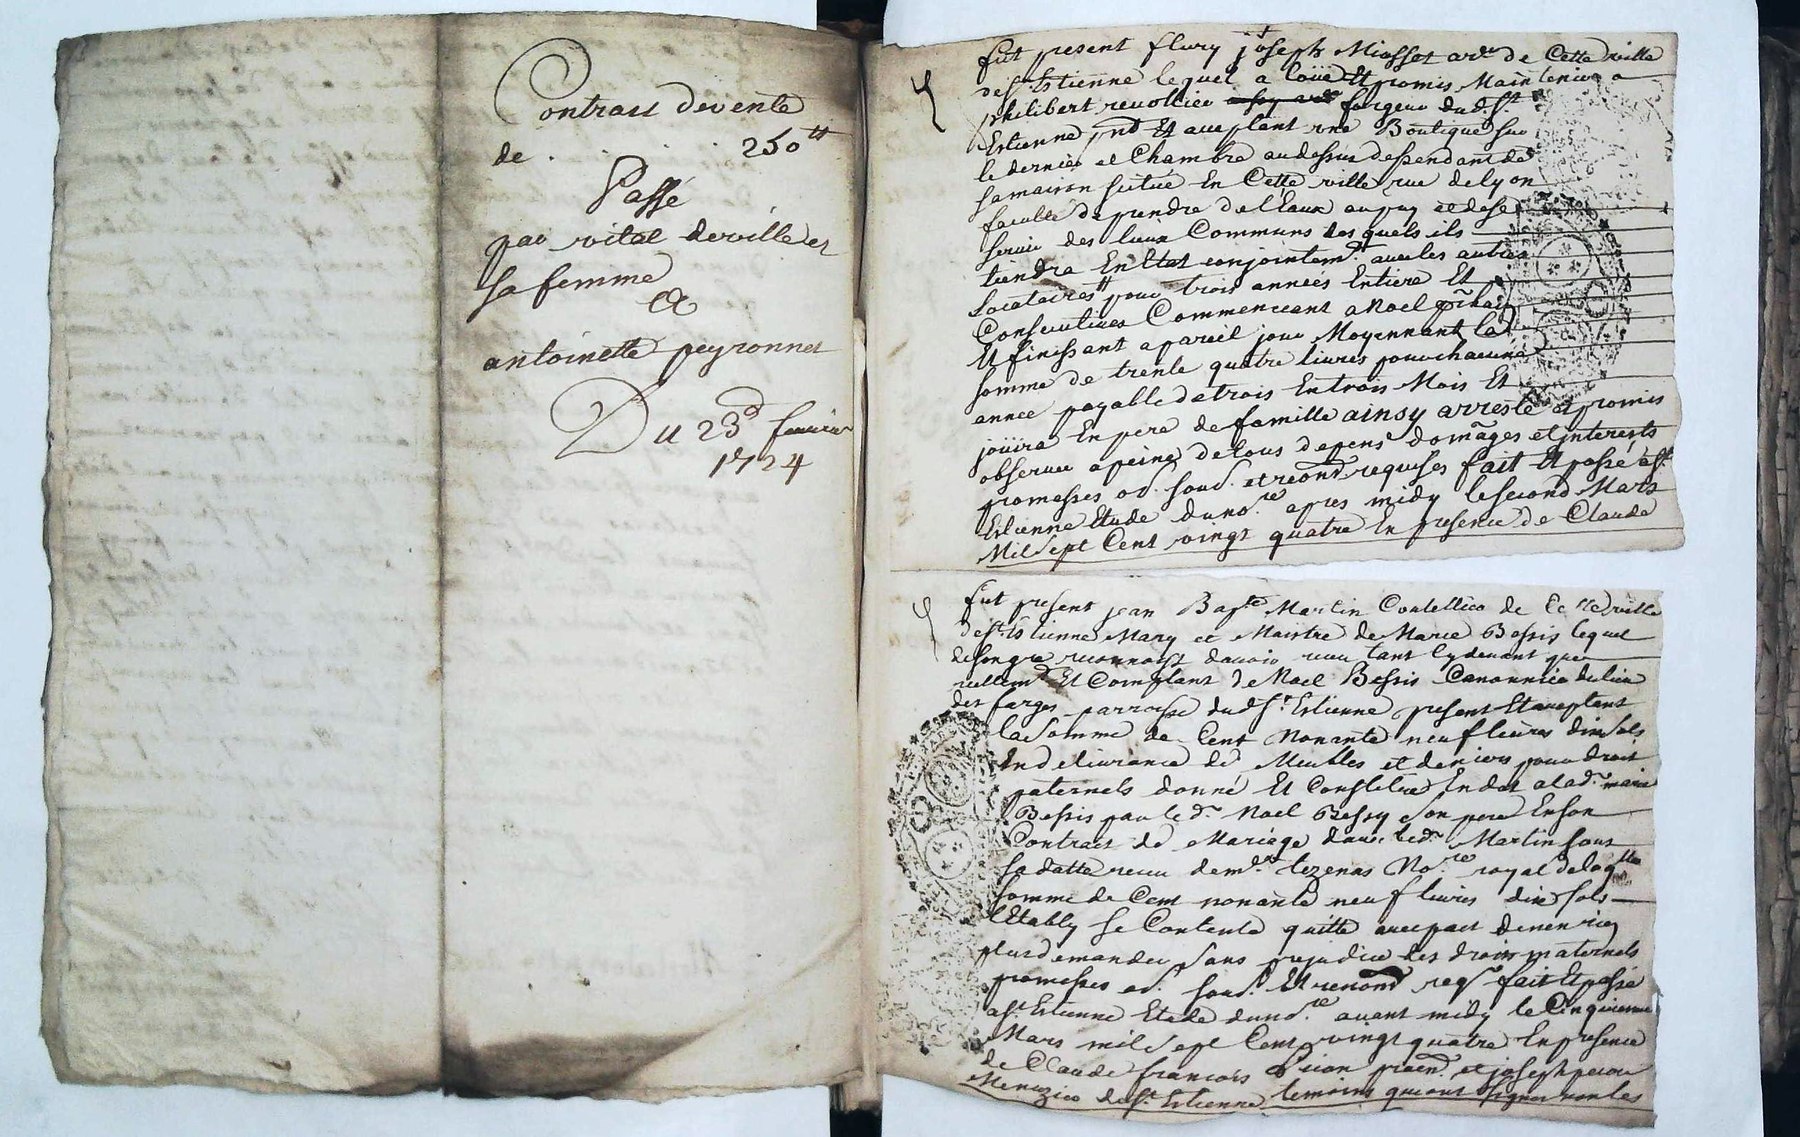 Contrau de vente
de . . . . 250 tt
Passé
par vital deville et
sa femme
A
antoinette peyronnet
Du 23d feurier
1724
fut present fleury joseph Miosset ard de Cette ville
de st Estienne lequel a loüé Et promis Maintenir a
philibert reuollier forgeur dud st
Estienne pnt Et aceptant vne Boutique sur
le dernier et Chambre au dessus dessendant de
sa maison scitué En Cette ville rue de lyon
faculté de prendre de l'Eaux au puy et de se
seruir des lieux Communs desquels ils
tiendra En conjointemt auec les autres
locataires pour trois années Entiere Et
Consecutiues Commenceant a Noel pchain
Et finissant a pareil jour Moyennant la
somme de trente quatre liures pour chacune
année payable de trois En trois Mois Et
joüira En pere de famille ainsy arresté et promis
obseruer a peine de tous depens domages et interests
promesses ob. soud. et renond requises fait Et passé a st
Estienne Etude du nore apres midy le second Mars
Mil sept Cent vingt quatre En presence de Claude
fut present jean Bapte Martin Coutellier de Cette ville
de st Estienne Mary et Maistre de Marie Bessis lequel
de son gré reconnoist d'auoir receu tant cy deuant que
reellemt Et Comptant de Noel Bessis Canonnier du lieu
des farges parroisse dud st Estienne present Et aceptant
la Somme de Cent Nonante neuf liures dix sols
En deliurance de Meubles et deniers pour droit
paternels donné Et Constitué En dot a lad. marie
Bessis par led. Noel Bessy son pere En son
Contrat de Mariage auec led. Martin sous
sa datte receu de me tezenas Nore royal de laqlle
somme de Cent nonante neuf liures dix sols
l'Etably se Contente quitte auec pact de n'en rien
plus demander Sans prejudice des droits maternels
promesses ob. soud. Et renond reqs fait Et passé
a st Estienne Etude du nore auant midy le Cinquieme
Mars mil sept Cent vingt quatre En presence
de Claude francois Prion pratn. et joseph perou
Menuzier de st Estienne temoins qui ont signé non les